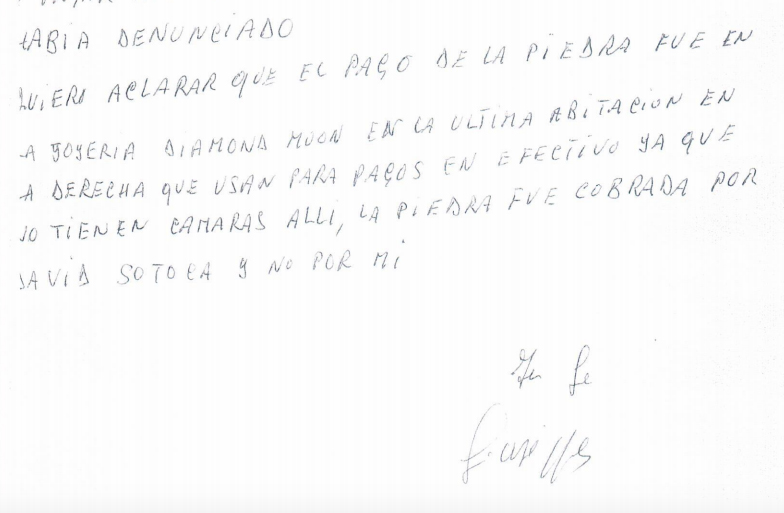 HABIA DENUNCIADO
QUIERO ACLARAR QUE EL PAGO DE LA PIEDRA FUE EN
A JOYERIA DIAMOND MOON EN LA ULTIMA ABITACION EN
A DERECHA QUE USAN PARA PAGOS EN EFECTIVO YA QUE
NO TIENEN CAMARAS ALLI, LA PIEDRA FUE COBRADA POR
DAVID SOTOCA Y NO POR MI